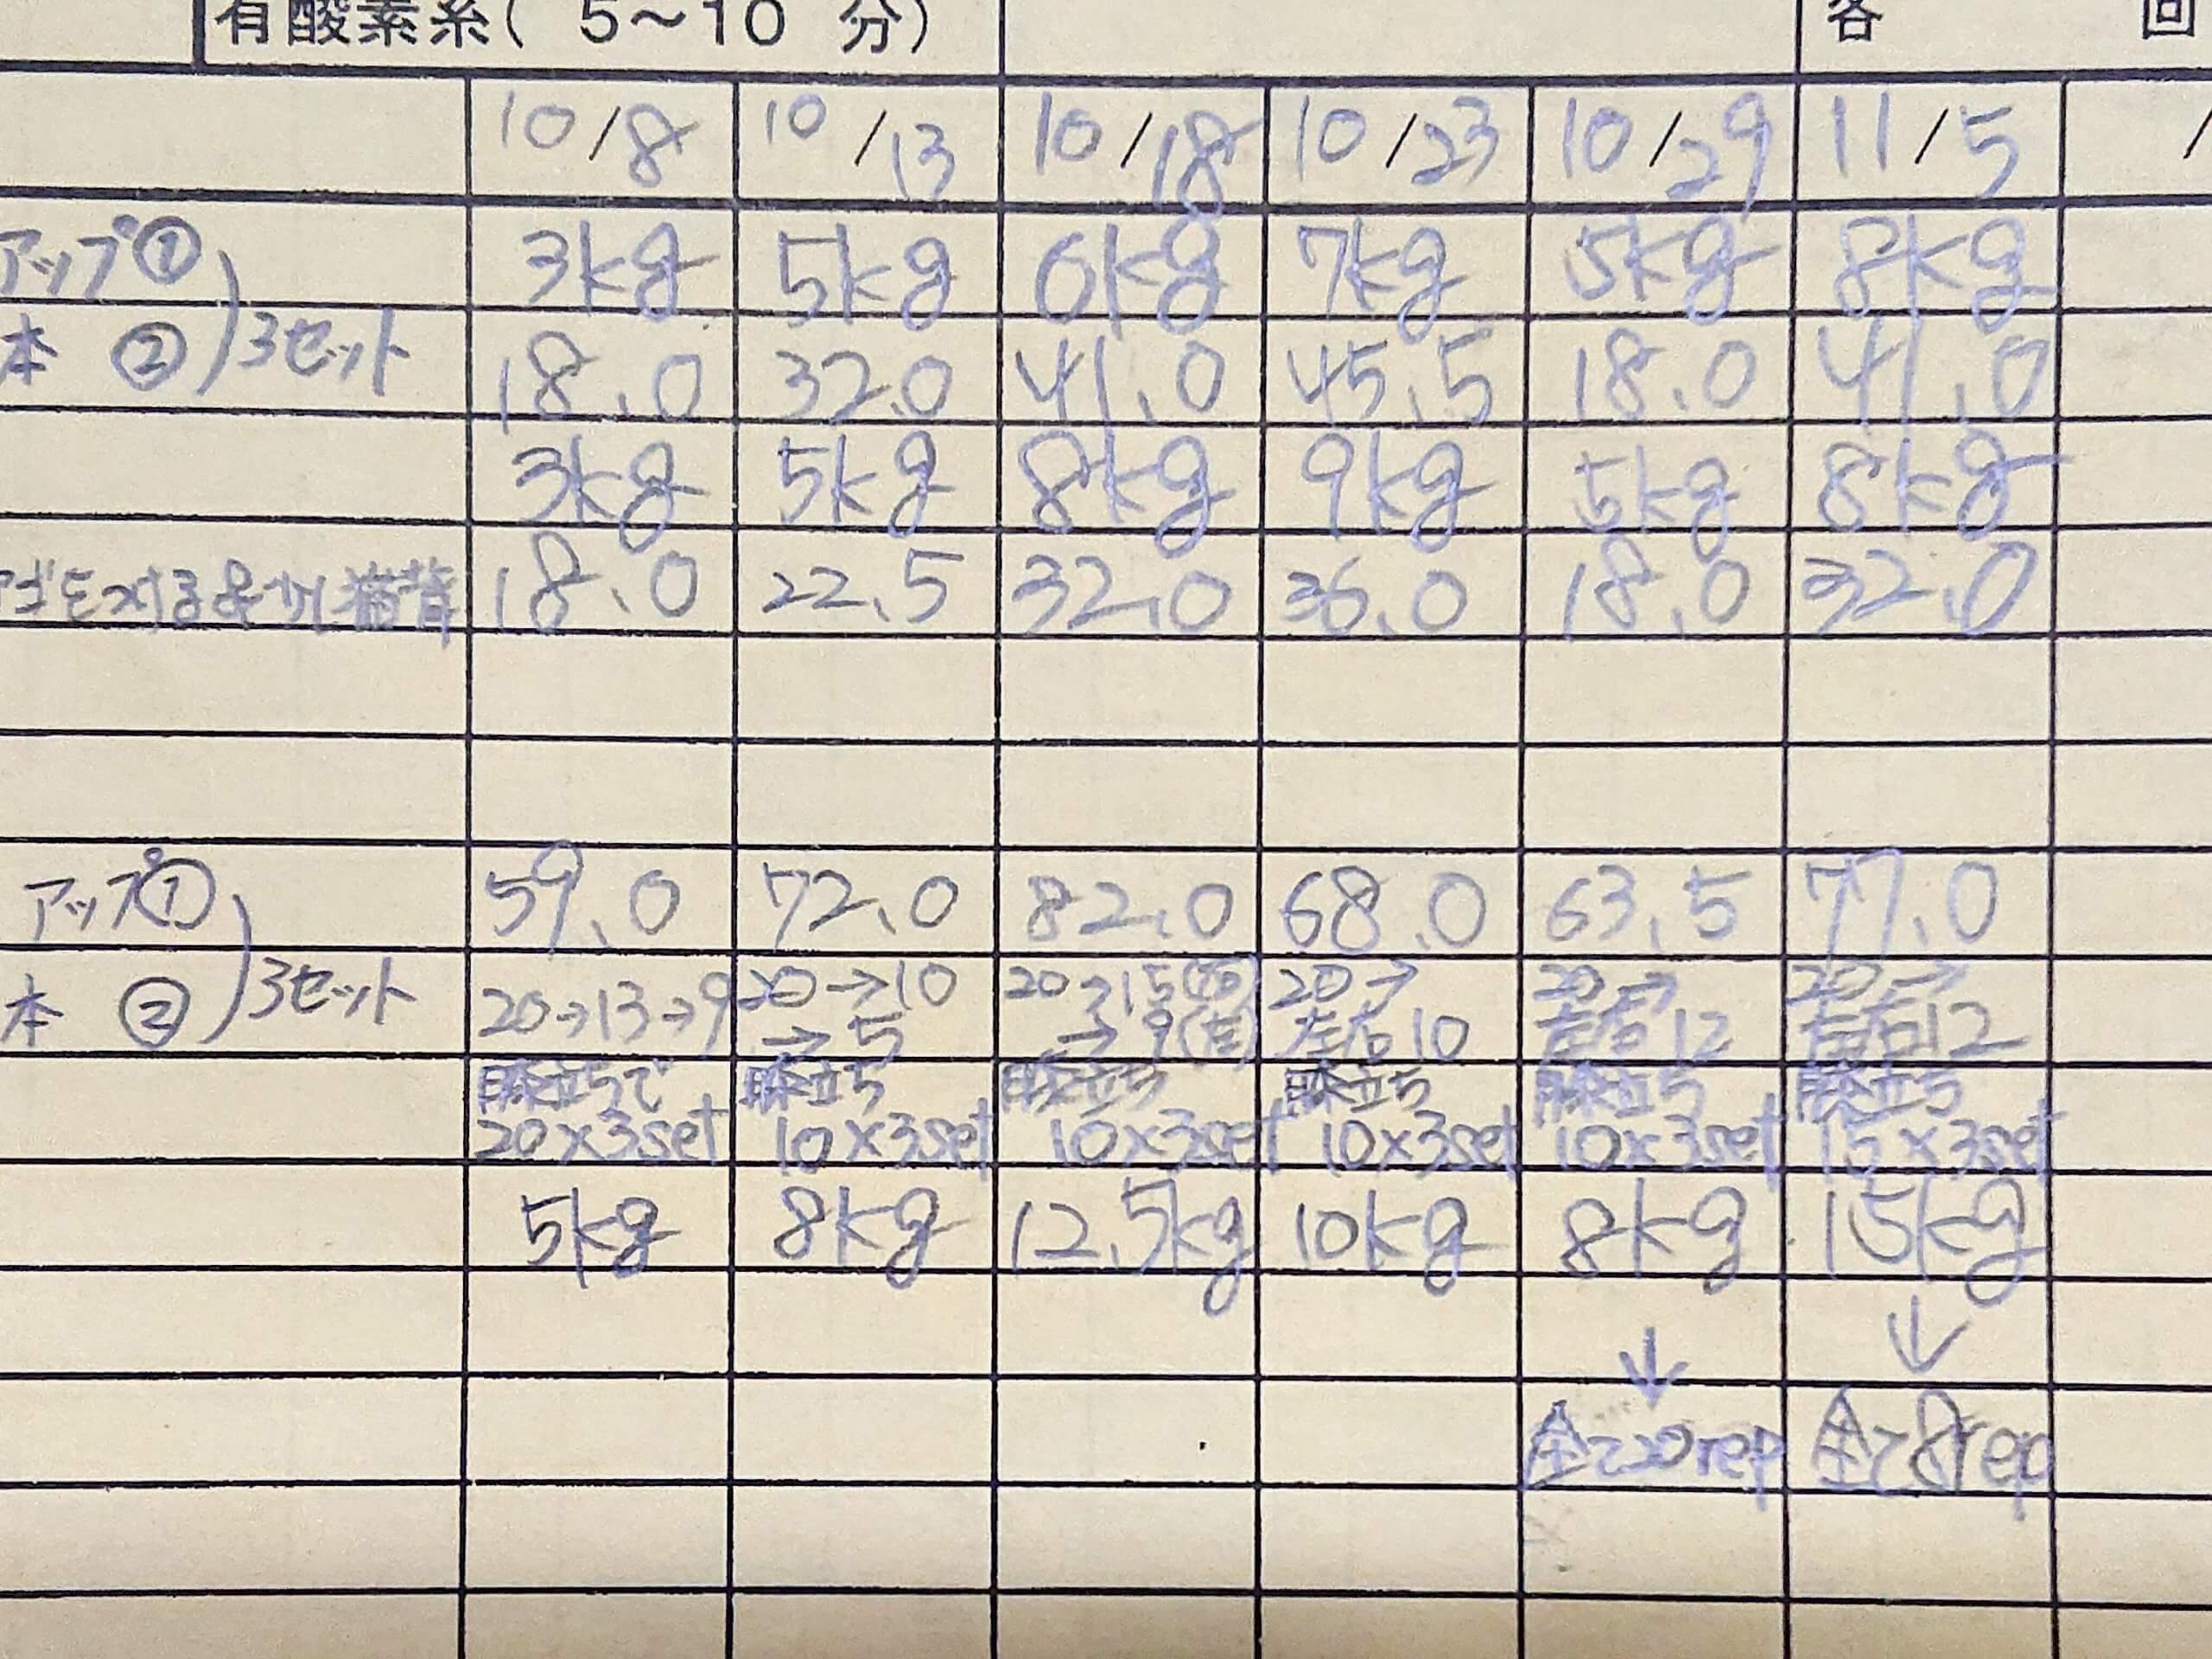 有酸素系( 5～10 分) 各 回
10/8 10/13 10/18 10/23 10/29 11/5 /
アップ① 3kg 5kg 6kg 7kg 5kg 8kg
本 ② 3セット 18.0 32.0 41.0 45.5 18.0 41.0
3kg 5kg 8kg 9kg 5kg 8kg
猫背 18.0 22.5 32.0 36.0 18.0 32.0
アップ① 59.0 72.0 82.0 68.0 63.5 77.0
本 ② 3セット 20→13→9 20→10 20→15(右) 20→ 20→ 20→
→5 →9(左) 左右10 左右12 左右12
膝立ちで 膝立ち 膝立ち 膝立ち 膝立ち 膝立ち
20×3set 10×3set 10×3set 10×3set 10×3set 15×3set
5kg 8kg 12.5kg 10kg 8kg 15kg
↓ ↓
全て20rep 全て8rep